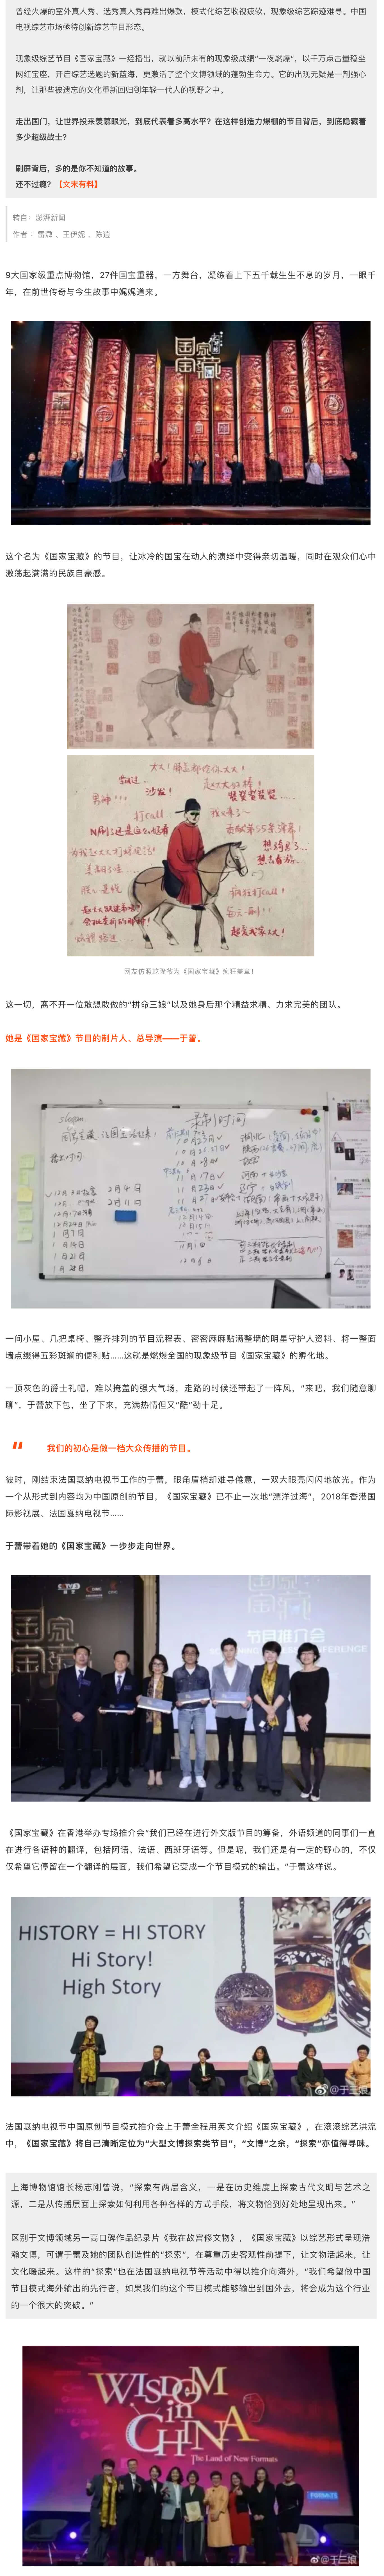 曾经火爆的室外真人秀、选秀真人秀再难出爆款，模式化综艺收视疲软，现象级综艺踪迹难寻。中国
电视综艺市场亟待创新综艺节目形态。
现象级综艺节目《国家宝藏》一经播出，就以前所未有的现象级成绩“一夜燃爆”，以千万点击量稳坐
网红宝座，开启综艺选题的新蓝海，更激活了整个文博领域的蓬勃生命力。它的出现无疑是一剂强心
剂，让那些被遗忘的文化重新回归到年轻一代人的视野之中。
走出国门，让世界投来羡慕眼光，到底代表着多高水平？在这样创造力爆棚的节目背后，到底隐藏着
多少超级战士？
刷屏背后，多的是你不知道的故事。
还不过瘾？【文末有料】
转自：澎湃新闻
作者：雷滴 、王伊妮 、陈逍
9大国家级重点博物馆，27件国宝重器，一方舞台，凝练着上下五千载生生不息的岁月，一眼千
年，在前世传奇与今生故事中娓娓道来。
国家宝藏
这个名为《国家宝藏》的节目，让冰冷的国宝在动人的演绎中变得亲切温暖，同时在观众们心中
激荡起满满的民族自豪感。
沙发！
网友仿照乾隆爷为《国家宝藏》疯狂盖章！
这一切，离不开一位敢想敢做的“拼命三娘”以及她身后那个精益求精、力求完美的团队。
她是《国家宝藏》节目的制片人、总导演——于蕾。
slogan
录制时间
一间小屋、几把桌椅、整齐排列的节目流程表、密密麻麻贴满整墙的明星守护人资料、将一整面
墙点缀得五彩斑斓的便利贴……这就是燃爆全国的现象级节目《国家宝藏》的孵化地。
一顶灰色的爵士礼帽，难以掩盖的强大气场，走路的时候还带起了一阵风，“来吧，我们随意聊
聊”，于蕾放下包，坐了下来，充满热情但又“酷”劲十足。
“ 我们的初心是做一档大众传播的节目。
彼时，刚结束法国戛纳电视节工作的于蕾，眼角眉梢却难寻倦意，一双大眼亮闪闪地放光。作为
一个从形式到内容均为中国原创的节目，《国家宝藏》已不止一次地“漂洋过海”，2018年香港国
际影视展、法国戛纳电视节……
于蕾带着她的《国家宝藏》一步步走向世界。
节目推介会
《国家宝藏》在香港举办专场推介会“我们已经在进行外文版节目的筹备，外语频道的同事们一直
在进行各语种的翻译，包括阿语、法语、西班牙语等。但是呢，我们还是有一定的野心的，不仅
仅希望它停留在一个翻译的层面，我们希望它变成一个节目模式的输出。”于蕾这样说。
HISTORY = HI STORY
Hi Story!
High Story
@于三娘
法国戛纳电视节中国原创节目模式推介会上于蕾全程用英文介绍《国家宝藏》，在滚滚综艺洪流
中，《国家宝藏》将自己清晰定位为“大型文博探索类节目”，“文博”之余，“探索”亦值得寻味。
上海博物馆馆长杨志刚曾说，“探索有两层含义，一是在历史维度上探索古代文明与艺术之
源，二是从传播层面上探索如何利用各种各样的方式手段，将文物恰到好处地呈现出来。”
区别于文博领域另一高口碑作品纪录片《我在故宫修文物》，《国家宝藏》以综艺形式呈现浩
瀚文博，可谓于蕾及她的团队创造性的“探索”，在尊重历史客观性前提下，让文物活起来，让
文化暖起来。这样的“探索”也在法国戛纳电视节等活动中得以推介向海外，“我们希望做中国
节目模式海外输出的先行者，如果我们的这个节目模式能够输出到国外去，将会成为这个行业
的一个很大的突破。”
WISDOM
in
CHINA
The Land of New Formats
@于三娘